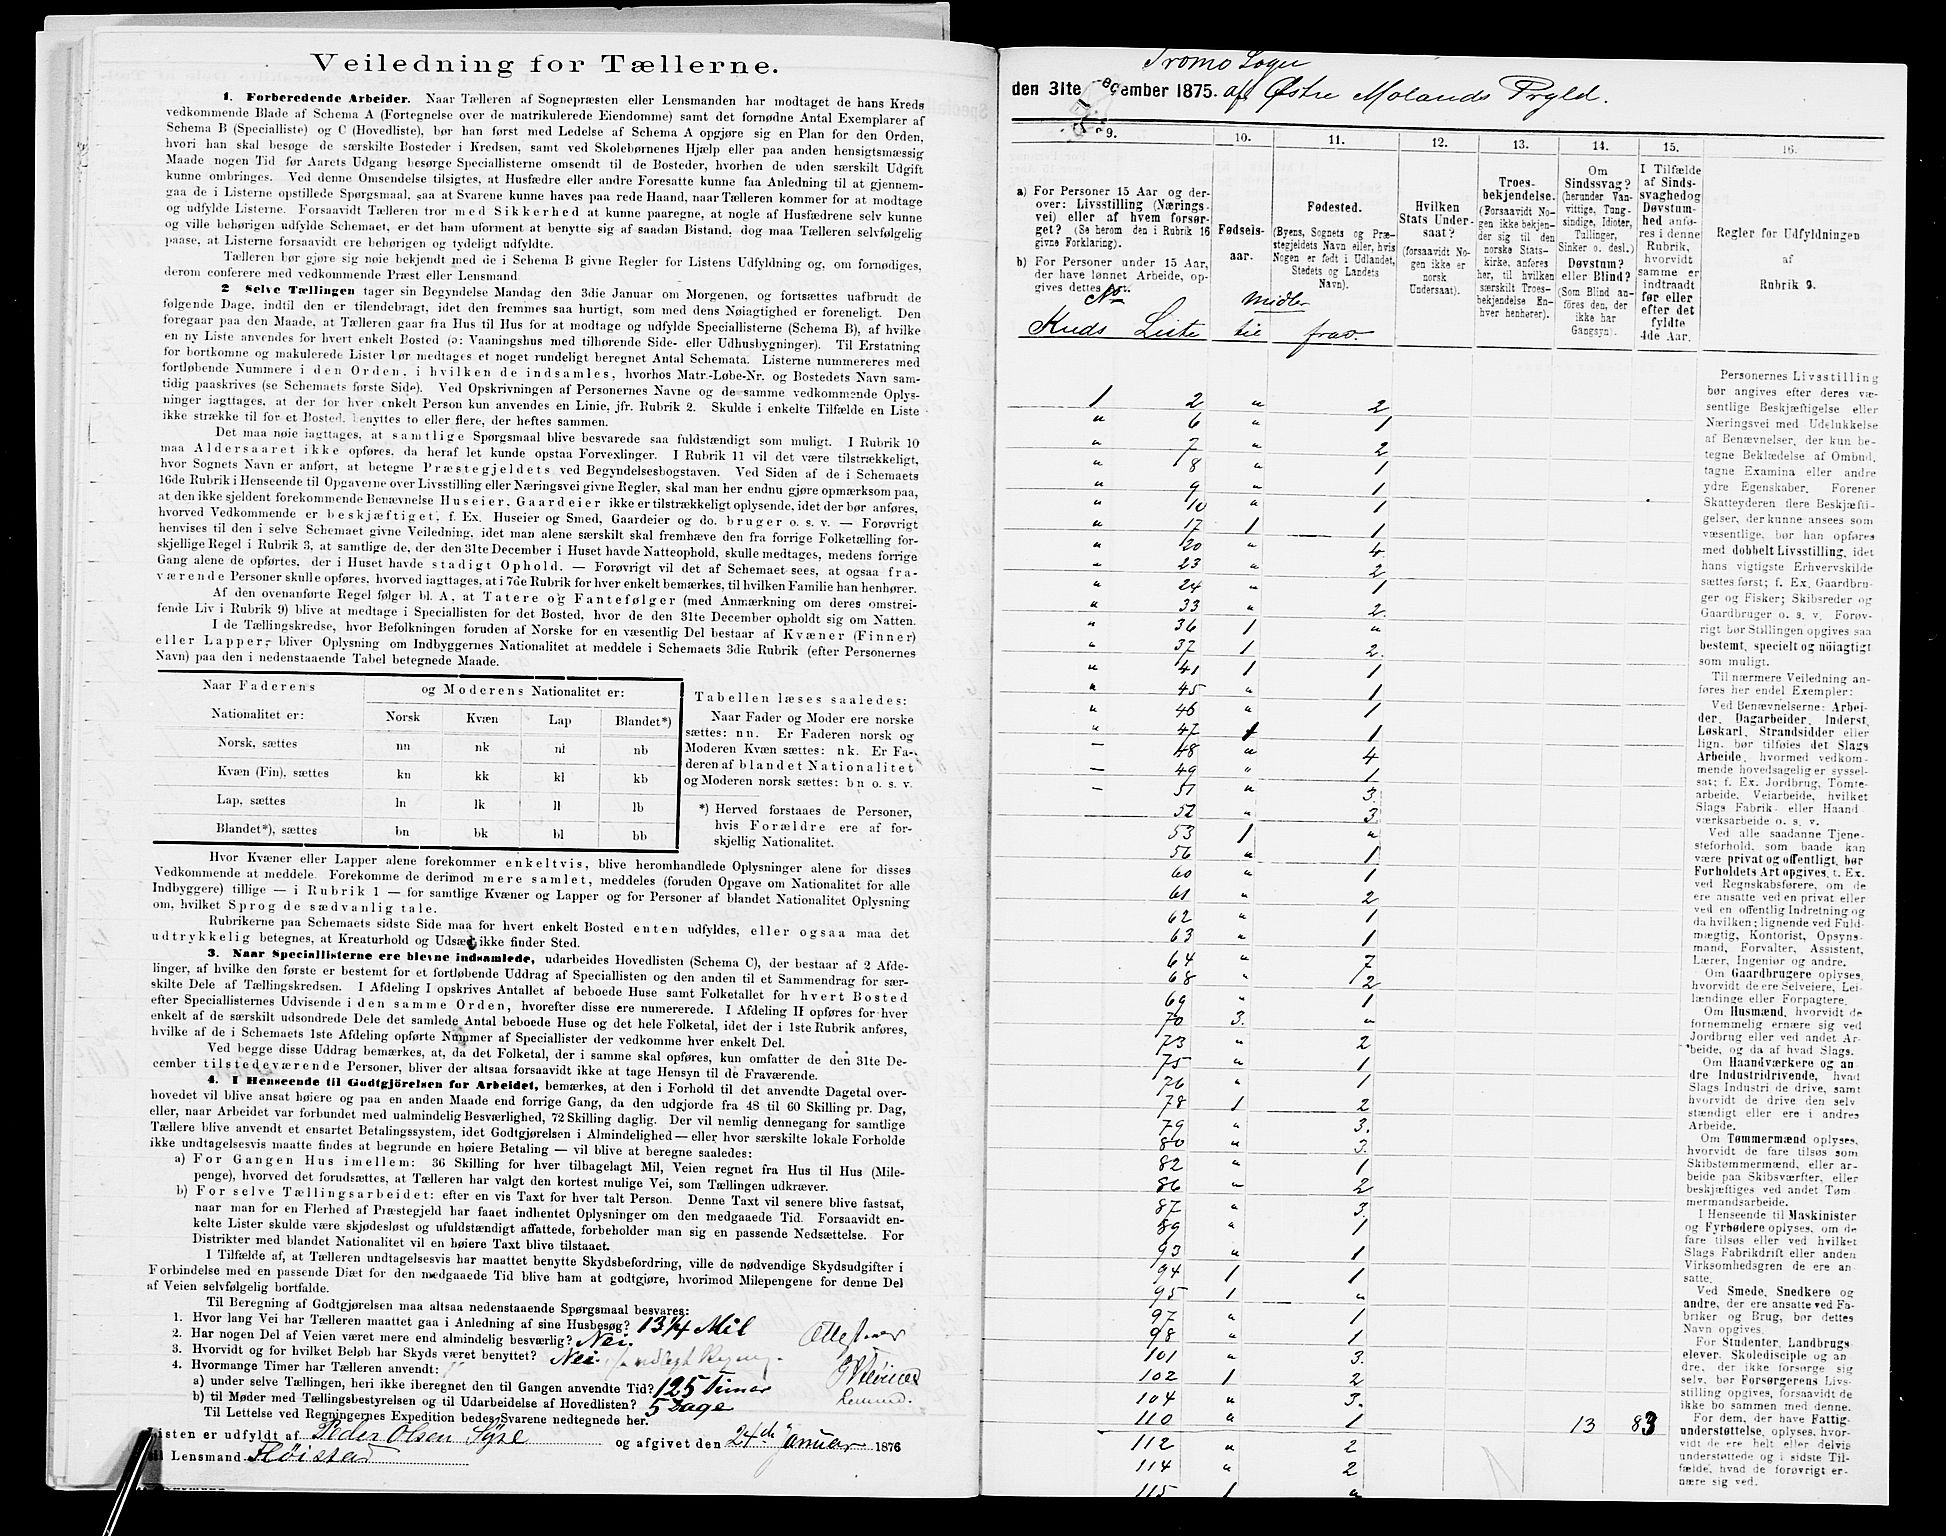 Veiledning for Tællerne.
1. Forberedende Arbeider. Naar Tælleren af Sognepræsten eller Lensmanden har modtaget de hans Kreds
vedkommende Blade af Schema A (Fortegnelse over de matrikulerede Eiendomme) samt det fornødne Antal Exemplarer af
Schema B (Specialliste) og C (Hovedliste), bør han først med Ledelse af Schema A opgjøre sig en Plan for den Orden,
hvori han skal besøge de særskilte Bosteder i Kredsen, samt ved Skolebørnenes Hjælp eller paa anden hensigtsmæssig
Maade nogen Tid før Aarets Udgang besørge Speciallisterne omsendt til de Bosteder, hvorhen de uden særskilt Udgift
kunne ombringes. Ved denne Omsendelse tilsigtes, at Husfædre eller andre Foresatte kunne faa Anledning til at gjennem-
gaa de i Listerne opstillede Spørgsmaal, saa at Svarene kunne haves paa rede Haand, naar Tælleren kommer for at modtage
og udfylde Listerne. Forsaavidt Tælleren tror med Sikkerhed at kunne paaregne, at nogle af Husfædrene selv kunne
og ville behørigen udfylde Schemaet, er det ham uforment at benytte sig af saadan Bistand, dog maa Tælleren selvfølgelig
paase, at Listerne forsaavidt ere behørigen og tydeligt udfyldte.
Tælleren bør gjøre sig nøie bekjendt med de i Schema B givne Regler for Listens Udfyldning og, om fornødiges,
derom conferere med vedkommende Præst eller Lensmand.
2 Selve Tællingen tager sin Begyndelse Mandag den 3die Januar om Morgenen, og fortsættes uafbrudt de
følgende Dage, indtil den er tilendebragt, idet den fremmes saa hurtigt, som med dens Nøiagtighed er foreneligt. Den
foregaar paa den Maade, at Tælleren gaar fra Hus til Hus for at modtage og udfylde Speciallisterne (Schema B), af hvilke
en ny Liste anvendes for hvert enkelt Bosted (ɔ: Vaaningshus med tilhørende Side- eller Udhusbygninger). Til Erstatning
for bortkomne og makulerede Lister bør medtages et noget rundeligt beregnet Antal Schemata. Listerne nummereres med
fortløbende Nummere i den Orden, i hvilken de indsamles, hvorhos Matr.-Løbe-Nr. og Bostedets Navn sam-
tidig paaskrives (se Schemaets første Side). Ved Opskrivningen af Personernes Navne og de samme vedkommende Oplys-
ninger iagttages, at der for hver enkelt Person kun anvendes en Linie, jfr. Rubrik 2. Skulde i enkelte Tilfælde en Liste
ikke strække til for et Bosted, benyttes to eller flere, der heftes sammen.
Det maa nøie iagttages, at samtlige Spørgsmaal blive besvarede saa fuldstændigt som muligt. I Rubrik 10
maa Aldersaaret ikke opføres, da heraf let kunde opstaa Forvexlinger. I Rubrik 11 vil det være tilstrækkeligt,
hvor Sognets Navn er anført, at betegne Præstegjeldets ved Begyndelsesbogstaven. Ved Siden af de i Schemaets
16de Rubrik i Henseende til Opgaverne over Livsstilling eller Næringsvei givne Regler, skal man her endnu gjøre opmærksom paa,
at den ikke sjeldent forekommende Benævnelse Huseier, Gaardeier ikke er tilstrækkeligt oplysende, idet der bør anføres,
hvorved Vedkommende er beskjæftiget, f. Ex. Huseier og Smed, Gaardeier og do. bruger o. s. v. — Forøvrigt
henvises til den i selve Schemaet givne Veiledning, idet man alene særskilt skal fremhæve den fra forrige Folketælling for-
skjellige Regel i Rubrik 3, at samtlige de, der den 31te December i Huset havde Natteophold, skulle medtages, medens forrige
Gang alene de opførtes, der i Huset havde stadigt Ophold. — Forøvrigt vil det af Schemaet sees, at ogsaa fra-
værende Personer skulle opføres, hvorved iagttages, at i 7de Rubrik for hver enkelt bemærkes, til hvilken Familie han henhører.
Af den ovenanførte Regel følger bl. A. at Tatere og Fantefølger (med Anmærkning om deres omstrei-
fende Liv i Rubrik 9) blive at medtage i Speciallisten for det Bosted, hvor de den 31te December opholdt sig om Natten.
I de Tællingskredse, hvor Befolkningen foruden af Norske for en væsentlig Del bestaar af Kvæner (Finner)
eller Lapper, bliver Oplysning om Indbyggernes Nationalitet at meddele i Schemaets 3die Rubrik (efter Personernes
Navn) paa den i nedenstaaende Tabel betegnede Maade.
Naar Faderens og Moderens Nationalitet er:
Nationalitet er: Norsk Kvæn Lap Blandet*)
Norsk, sættes nn nk nl nb
Kvæn (Fin), sættes kn kk kl kb
Lap, sættes ln lk ll lb
Blandet*), sættes bn bk bl bb
Tabellen læses saaledes:
Naar Fader og Moder ere norske
sættes: nn. Er Faderen norsk og
Moderen Kvæn sættes: nk. Er Fa-
deren af blandet Nationalitet
og Moderen norsk sættes: bn o. s. v.
*) Herved forstaaes de Personer,
hvis Forældre ere af for-
skjellig Nationalitet.
Hvor Kvæner eller Lapper alene forekommer enkeltvis, blive heromhandlede Oplysninger alene for disses
Vedkommende at meddele. Forekomme de derimod mere samlet, meddeles (foruden Opgave om Nationalitet for alle
Indbyggere) tillige — i Rubrik 1 — for samtlige Kvæner og Lapper og for Personer af blandet Nationalitet Oplysning
om, hvilket Sprog de sædvanlig tale.
Rubrikerne paa Schemaets sidste Side maa for hvert enkelt Bosted enten udfyldes, eller ogsaa maa det
udtrykkelig betegnes, at Kreaturhold og Udsæd ikke finder Sted.
3. Naar Speciallisterne ere blevne indsamlede, udarbeides Hovedlisten (Schema C), der bestaar af 2 Afde-
linger, af hvilke den første er bestemt for et fortløbende Uddrag af Speciallisten og den anden til et Sammendrag for sær-
skilte Dele af Tællingskredsen. I Afdeling I opskrives Antallet af beboede Huse samt Folketallet for hvert Bosted
efter Speciallisternes Udvisende i den samme Orden, hvorefter disse ere numererede. I Afdeling II opføres for hver
enkelt af de særskilt udsondrede Dele det samlede Antal beboede Huse og det hele Folketal, idet der i 1ste Rubrik anføres,
hvilke af de i Schemaets 1ste Afdeling opførte Nummer af Speciallister der vedkomme hver enkelt Del.
Ved begge disse Uddrag bemærkes, at, da det Folketal, der i samme skal opføres, kun omfatter de den 31te De-
cember tilstedeværende Personer, bliver der altsaa forsaavidt ikke at tage Hensyn til de Fraværende.
4. I Henseende til Godtgjörelsen for Arbeidet, bemærkes, at den i Forhold til det anvendte Dagetal over-
hovedet vil blive ansat høiere og paa en anden Maade end forrige Gang, da den udgjorde fra 48 til 60 Skilling pr. Dag,
eller, naar Arbeidet var forbundet med ualmindelig Besværlighed, 72 Skilling daglig. Der vil nemlig dennegang for samtlige
Tællere blive anvendt et ensartet Betalingssystem, idet Godtgjørelsen i Almindelighed — eller hvor særskilte lokale Forholde
ikke undtagelsesvis maatte findes at begrunde en høiere Betaling — vil blive at beregne saaledes:
a) For Gangen Hus imellem: 36 Skilling for hver tilbagelagt Mil, Veien regnet fra Hus til Hus (Mile-
penge), hvorved det forudsættes, at Tælleren har valgt den kortest mulige Vei, som Tællingen udkræver.
b) For selve Tællingsarbeidet: efter en vis Taxt for hver talt Person. Denne Taxt vil senere blive fastsat,
naar man for en Flerhed af Præstegjeld har faaet indhentet Oplysninger om den medgaaede Tid. Forsaavidt en-
kelte Lister skulde være skjødesløst og ufuldstændigt affattede, forbeholder man sig en passende Nedsættelse. For
Distrikter med blandet Nationalitet vil en høiere Taxt blive tilstaaet.
I Tilfælde af, at Tælleren undtagelsesvis har maattet benytte Skydsbefordring, ville de nødvendige Skydsudgifter i
Forbindelse med en passende Diæt for den medgaaede Tid blive ham at godtgjøre, hvorimod Milepengene for denne Del
af Veien selvfølgelig bortfalde.
Til Beregning af Godtgjørelsen maa altsaa nedenstaaende Spørgsmaal besvares:
1. Hvor lang Vei har Tælleren maattet gaa i Anledning af sine Husbesøg? 13 1/4 Mil
2. Har nogen Del af Veien været mere end almindelig besværlig? Nei.
3. Hvorvidt og for hvilket Beløb har Skyds været benyttet? Nei.
4. Hvormange Timer har Tælleren anvendt:
a) under selve Tællingen, heri ikke iberegnet den til Gangen anvendte Tid? 125 Timer
b) til Møder med Tællingsbestyrelsen og til Udarbeidelse af Hovedlisten? 5 Dage
Til Lettelse ved Regningernes Expedition bedes Svarene nedtegnede her.
Listen er udfyldt af Peder Olsen og afgivet den 24de Januar 1876
til Lensmand Höistad
Tromø Sogn
den 31te December 1875. af Østre Molands Prgld.
9. 10. 11. 12. 13. 14. 15. 16.
a) For Personer 15 Aar og der-
over: Livsstilling (Nærings-
vei) eller af hvem forsør-
get? (Se herom den i Rubrik 16
givne Forklaring).
b) For Personer under 15 Aar,
der have lønnet Arbeide, op-
gives dettes Art.
Fødsels-
aar.
Fødested.
(Byens, Sognets og Præ-
stegjeldets Navn eller, hvis
Nogen er født i Udlandet,
Stedets og Landets
Navn).
Hvilken
Stats Under-
saat?
(forsaavidt No-
gen ikke er
norsk
Undersaat).
Troes-
bekjendelse.
(Forsaavidt No-
gen ikke bekjen-
der sig til den
norske Stats-
kirke, anføres
her, til hvilken
særskilt Troes-
bekjendelse En-
hver henhører).
Om
Sindssvag?
(herunder Van-
vittige, Tung-
sindige, Idioter,
Tullinger,
Sinker o. desl.)
Døvstum?
eller Blind?
(Som Blind an-
föres den, der
ikke har
Gangsyn).
I Tilfælde
af Sinds-
svaghed og
Døvstum-
hed anfø-
res i denne
Rubrik,
hvorvidt
samme er
indtraadt
før eller
efter det
fyldte
4de Aar.
Regler for Udfyldningen
af
Rubrik 9.
No midler
Kreds Liste til frav.
1 2 " 2
" 6 " 1
" 7 " 2
" 8 " 1
" 9 " 1
" 10 " 1
" 17 1 1
" 20 " 4
" 23 " 2
" 24 " 1
" 33 " 2
" 36 1 "
" 37 1 2
" 41 1 1
" 45 " 1
" 46 " 1
" 47 1 1
— 48 " 4
— 49 " 1
— 51 " 3
52 " 3
53 1 "
56 " 1
60 " 1
61 " 2
62 " 1
63 " 1
64 " 7
68 " 2
69 " 1
70 3 "
73 " 2
75 " 1
76 " 1
78 1 2
79 " 3
80 " 3
82 " 1
86 " 2
87 " 3
89 " 1
93 " 1
94 1 1
95 1 "
97 " 1
98 " 1
101 " 3
102 1 2
104 " 3
110 " 1 13 83
112 " 2
114 " 2
115 1 "
Personernes Livsstilling
bør angives efter deres væ-
sentlige Beskjæftigelse eller
Næringsvei med Udelukkelse
af Benævnelser, der kun be-
tegne Beklædelse af Ombud,
tagne Examina eller andre
ydre Egenskaber. Forener
Skatteyderen flere Beskjæfti-
gelser, der kunne ansees som
væsentlige, bør han opføres
med dobbelt Livsstilling, idet
hans vigtigste Erhvervskilde
sættes først; f. Ex. Gaardbru-
ger og Fisker; Skibsreder og
Gaardbruger o. s. v. Forøv-
rigt bør Stillingen opgives saa
bestemt, specielt og nöiagtigt
som muligt.
Til nærmere Veiledning an-
føres her endel Exempler:
Ved Benævnelserne: Arbei-
der, Dagarbeider, Inderst,
Løskarl, Strandsidder eller
lign. bør tilføies det Slags
Arbeide, hvormed vedkom-
mende hovedsagelig er syssel-
sat; f. Ex. Jordbrug, Tomte-
arbeide, Veiarbeide, hvilket
Slags Fabrik- eller Haand-
værksarbeide o. s. v.
Ved alle saadanne Tjene-
steforhold, som baade kan
være privat og offentligt, bør
Forholdets Art opgives, t. Ex.
ved Regnskabsførere, om de
ere ansatte ved en privat eller
ved en offentlig Indretning og
da hvilken; lignende ved Fuld-
mægtig, Kontorist, Opsyns-
mand, Forvalter, Assistent,
Lærer, Ingeniør og andre.
Om Gaardbrugere oplyses,
hvorvidt de ere Selveiere, Lei-
lændinge eller Forpagtere.
Om Husmænd, hvorvidt de
fornemmelig ernære sig ved
Jordbrug eller ved andet Ar-
beide, og da af hvad Slags.
Om Haandværkere og an-
dre Industridrivende, hvad
Slags Industri de drive, samt
hvorvidt de drive den selv-
stændigt eller ere i andres
Arbeide.
Om Tømmermænd oplyses,
hvorvidt de fare tilsøs som
Skibstømmermænd, eller ar-
beide paa Skibsværfter, eller
beskjæftiges ved andet Tøm-
mermandsarbeide.
I Henseende til Maskinister
og Fyrbødere oplyses, om de
fare tilsøs eller ved hvilket
Slags Fabrikdrift eller anden
Virksomhedsgren de ere an-
satte.
Ved Smede, Snedkere og
andre, der ere ansatte ved Fa-
briker og Brug, bør dettes
Navn opgives.
For Studenter, Landbrugs-
elever, Skoledisciple og an-
dre, der ikke forsørge sig
selv, bør Forsørgerens Livs-
stilling opgives, forsaavidt de
ikke bo sammen med denne.
For dem, der have Fattig-
understøttelse, oplyses, hvor-
vidt de ere helt eller delvis
understøttede og i sidste Til-
fælde, hvad de forøvrigt er-
nære sig ved.